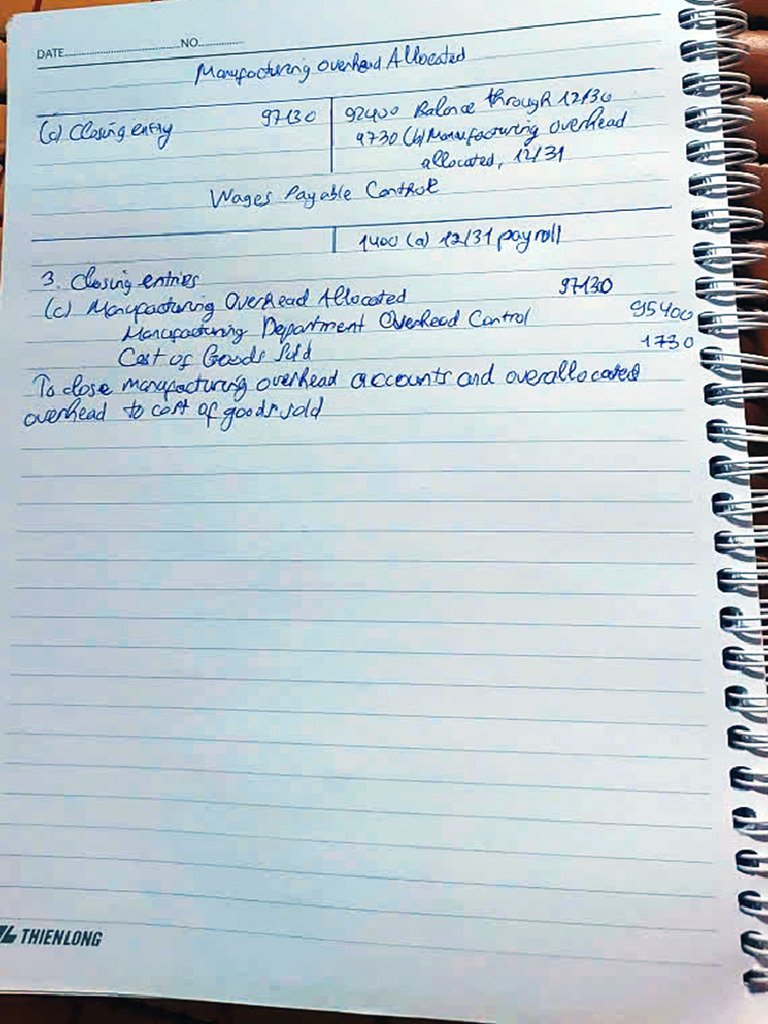 DATE..............................NO..............
Manufacturing Overhead Allocated
(c) Closing entry 97130 92400 Balance through 12/30
9730 (b) Manufacturing overhead
allocated, 12/31
Wages Payable Control
1400 (a) 12/31 payroll
3. Closing entries
(c) Manufacturing Overhead Allocated 97130
Manufacturing Department Overhead Control 95400
Cost of Goods Sold 1730
To close manufacturing overhead accounts and overallocated
overhead to cost of goods sold
THIENLONG